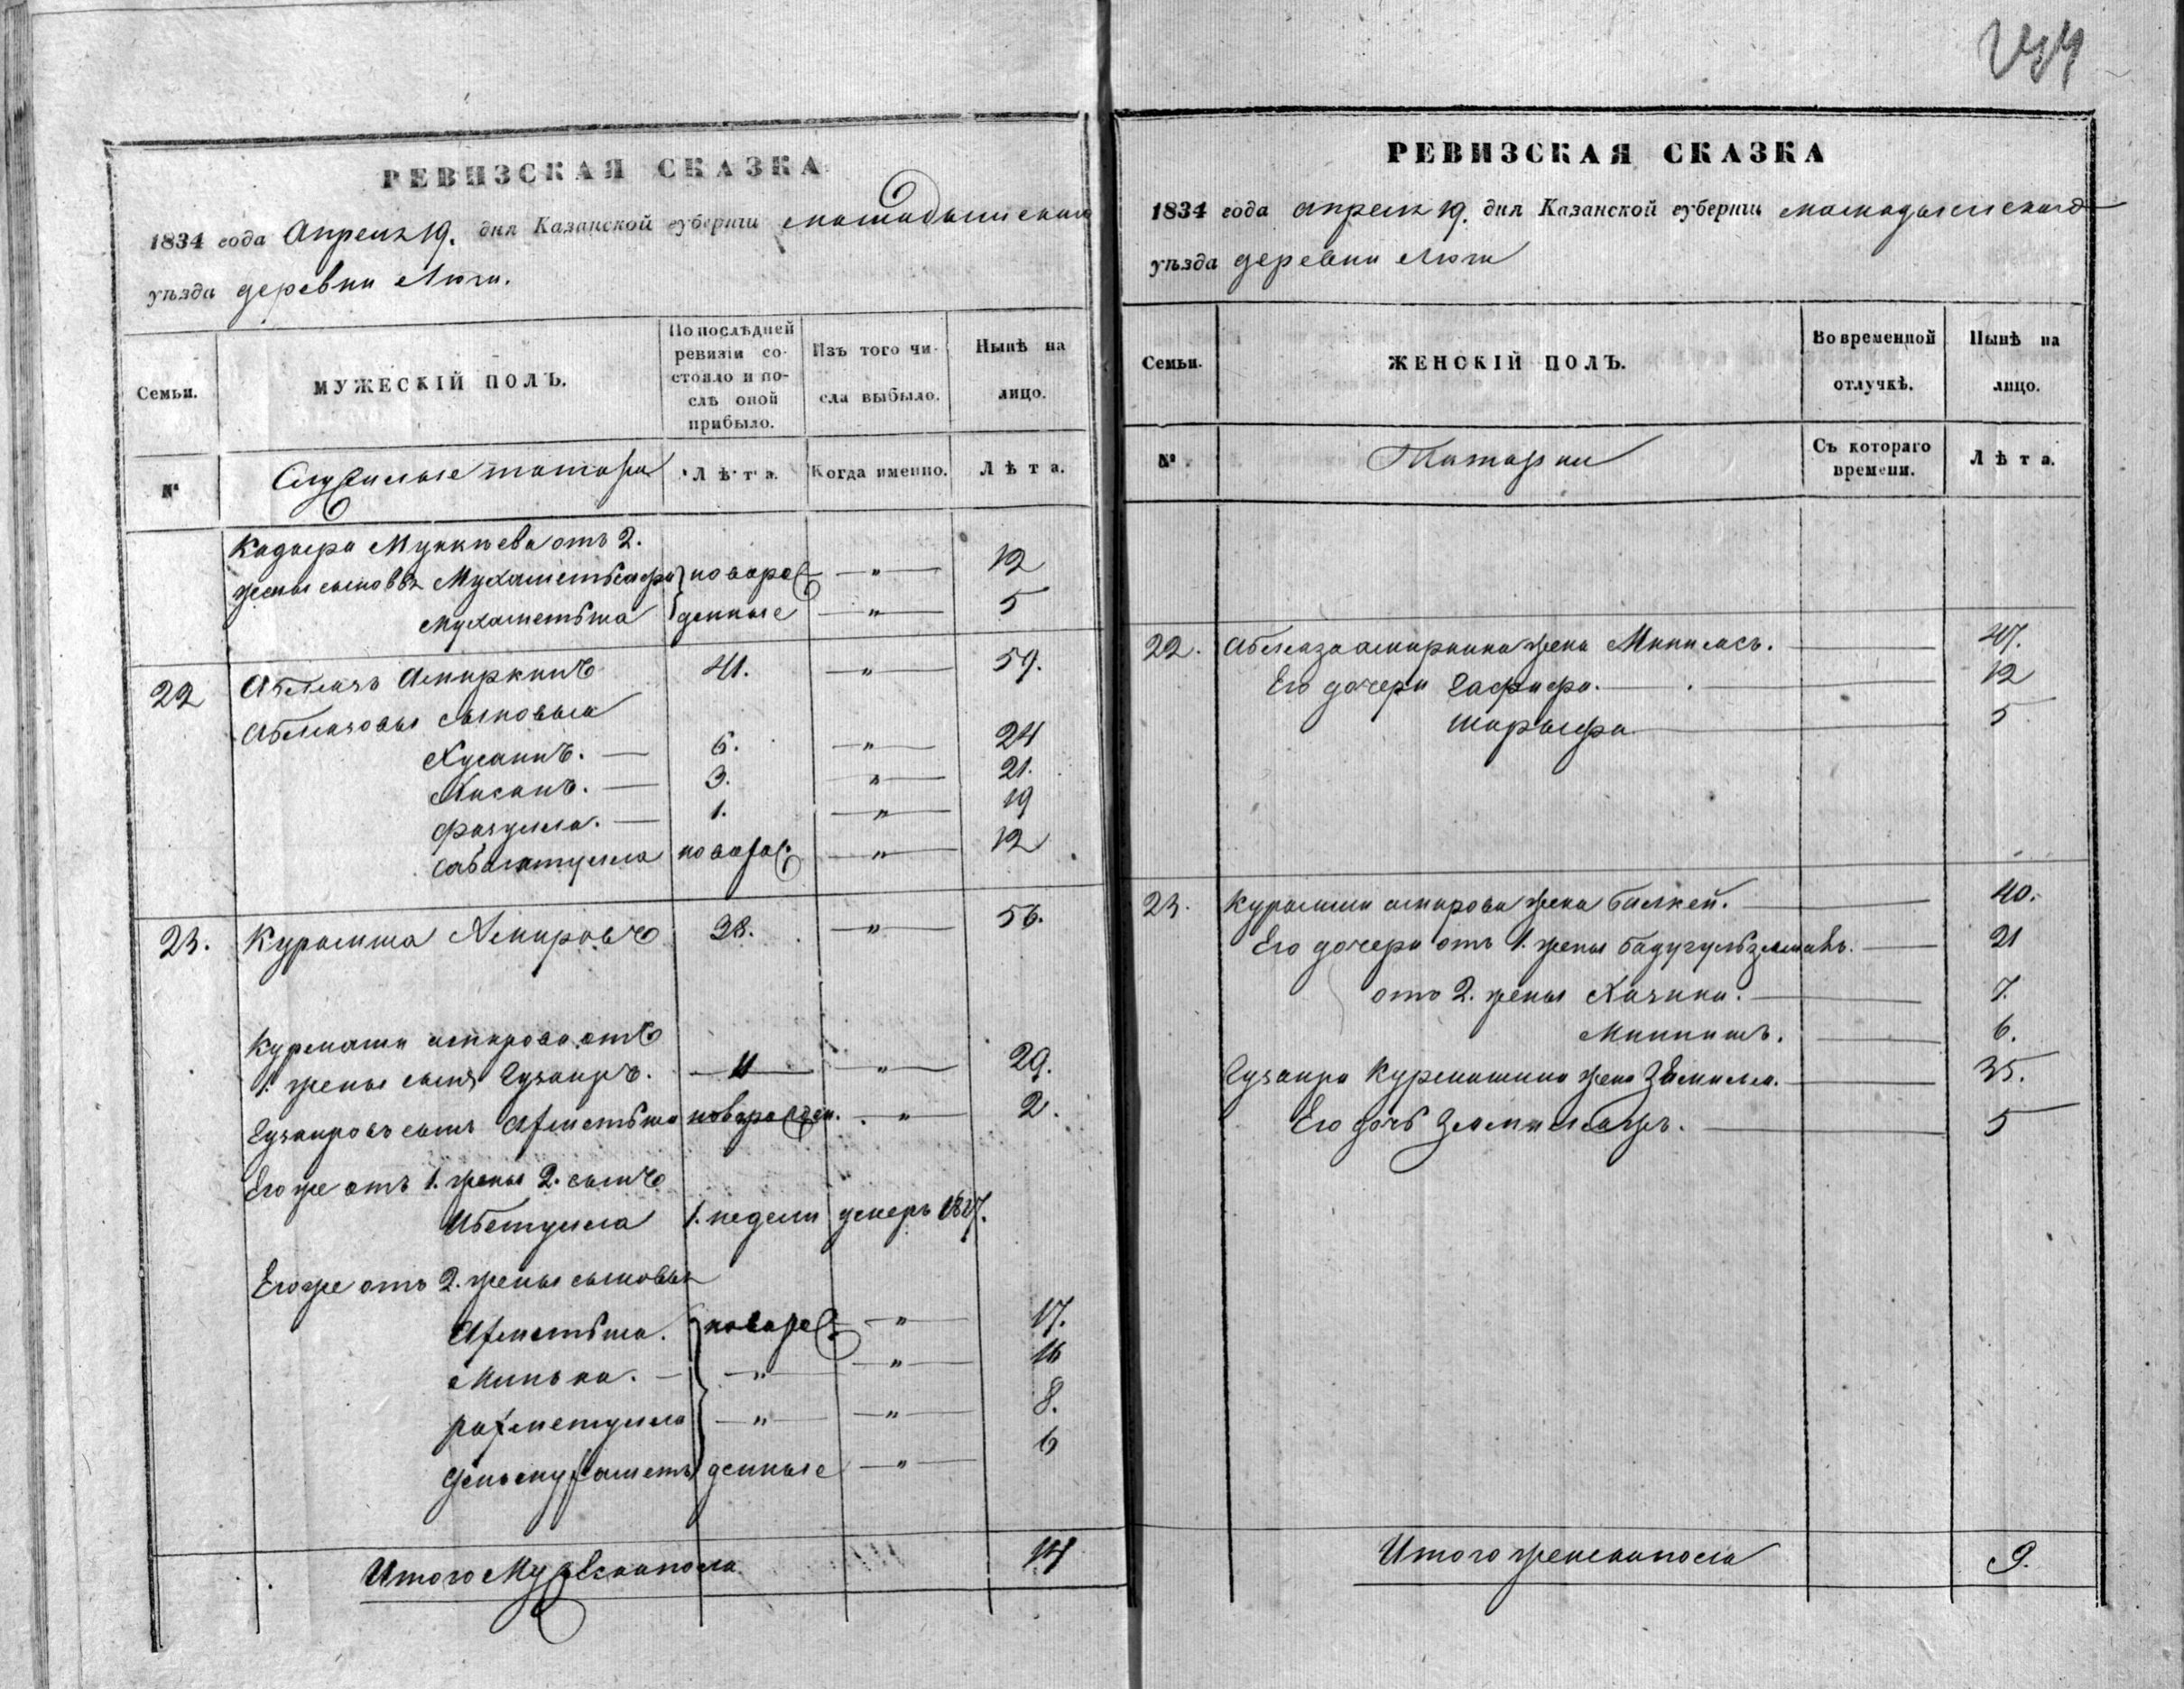 РЕВИЗСКАЯ СКАЗКА
1834 года Апреля 19. дня Казанской губерніи мамадышскаго
уѣзда деревни Люги.
Семьи.
МУЖЕСКІЙ ПОЛЪ.
По послѣдней ревизіи со-
стояло и по-
слѣ оной
прибыло.
Изъ того чи-
сла выбыло.
Нынѣ на
лицо.
№
Служилые татара
Лѣта.
Когда именно.
Лѣта.
Кадыра Мункиева отъ 2.
жены сыновья новорож 〃 12
Мухаметьша денные 〃 5
22 Аблязъ Амиркинъ 41. 〃 59.
Аблязовы сыновья
Хусаинъ. 6. 〃 24
Хасанъ. 3. 〃 21.
Фазулла. 1. 〃 19
Сабагатулла новорож. 〃 12
23. Курамша Амировъ 38. 〃 56.
Курмаши амирова отъ
1. жены сынъ Гузаиръ. 11 〃 29.
Гузаировъ сынъ Ахметьша новорожден. 〃 2.
Его же отъ 1. жены 2. сынъ
Ибетулла 1. недели умеръ 1817.
Его же отъ 2. жены сыновья
Ахметьша. новорож 〃 17.
Минька. 〃 〃 16
рахметулла 〃 〃 8.
денные 〃 6
Итого Мужеска пола 14
РЕВИЗСКАЯ СКАЗКА
1834 года апреля 19. дня Казанской губерніи мамадышскаго
уѣзда деревни Люги
Семьи.
ЖЕНСКІЙ ПОЛЪ.
Во временной
отлучкѣ.
Нынѣ на
лицо.
№
Татарки
Съ котораго
времени.
Лѣта.
22. Абляза амиркина жена Минлясъ. 47.
Его дочери Гафифа. 12
Шарыфа 5
23. Курамши амирова жена Балкей. 40.
Его дочери отъ 1. жены Бадугульзямань. 21
отъ 2. жены Хазика. 7.
Миннишъ. 6.
Гузаира Курмашина жена Замиля. 35.
Его дочь 5
Итого женска пола 9.